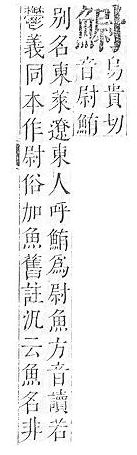 䲁
烏貴切
音尉鮪
別名東萊遼東人呼鮪爲尉魚方音讀若
鬱義同本作尉俗加魚舊註汎云魚名非